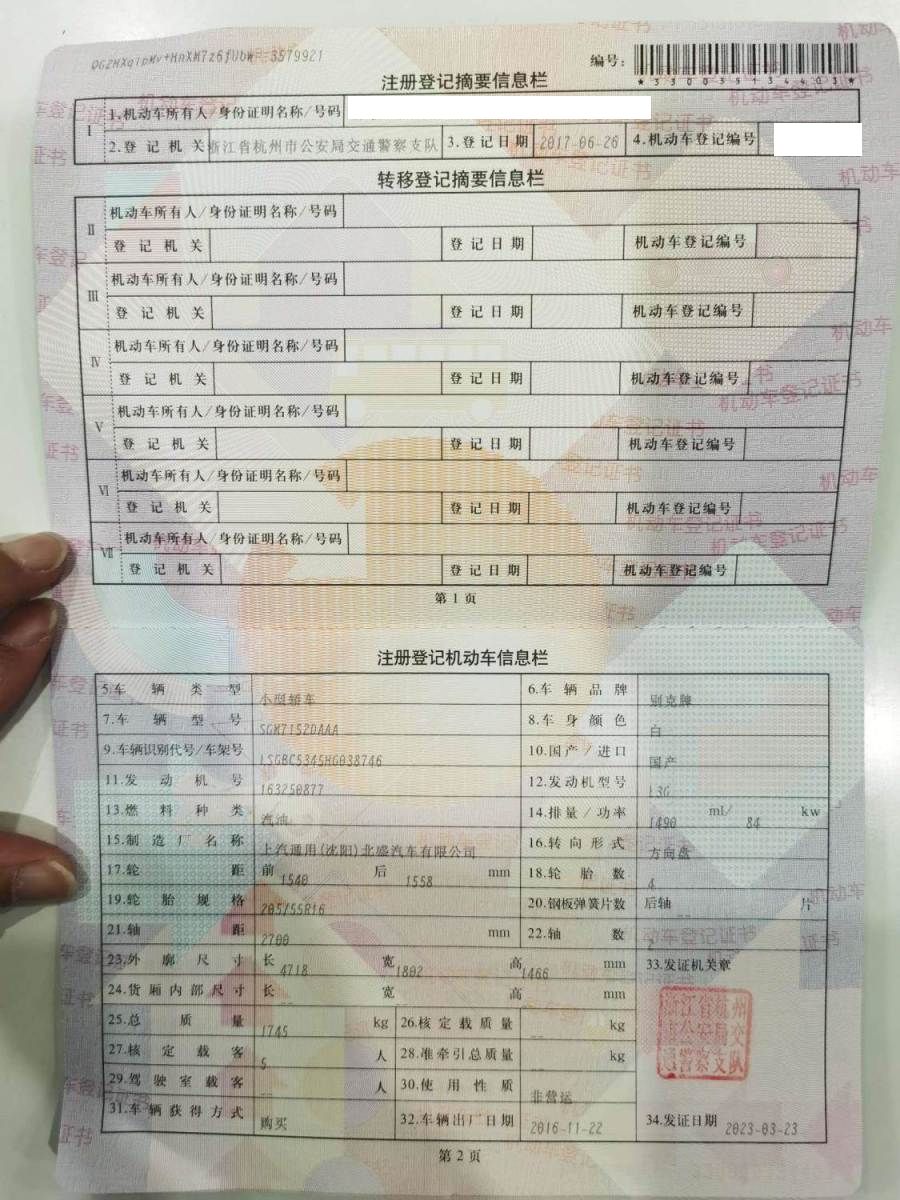 编号：
*330035134403*
注册登记摘要信息栏
Ⅰ 1.机动车所有人/身份证明名称/号码
2.登记机关 浙江省杭州市公安局交通警察支队 3.登记日期 2017-06-26 4.机动车登记编号
转移登记摘要信息栏
Ⅱ 机动车所有人/身份证明名称/号码
登记机关 登记日期 机动车登记编号
Ⅲ 机动车所有人/身份证明名称/号码
登记机关 登记日期 机动车登记编号
Ⅳ 机动车所有人/身份证明名称/号码
登记机关 登记日期 机动车登记编号
Ⅴ 机动车所有人/身份证明名称/号码
登记机关 登记日期 机动车登记编号
Ⅵ 机动车所有人/身份证明名称/号码
登记机关 登记日期 机动车登记编号
Ⅶ 机动车所有人/身份证明名称/号码
登记机关 登记日期 机动车登记编号
第1页
注册登记机动车信息栏
5.车辆类型 小型轿车 6.车辆品牌 别克牌
7.车辆型号 SGM7152DAAA 8.车身颜色 白
9.车辆识别代号/车架号 LSGBC5345HG038746 10.国产/进口 国产
11.发动机号 163250877 12.发动机型号 L3G
13.燃料种类 汽油 14.排量/功率 1490 ml/ 84 kw
15.制造厂名称 上汽通用(沈阳)北盛汽车有限公司 16.转向形式 方向盘
17.轮距 前 1540 后 1558 mm 18.轮胎数 4
19.轮胎规格 205/55R16 20.钢板弹簧片数 后轴 -- 片
21.轴距 2700 mm 22.轴数 2
23.外廓尺寸 长 4718 宽 1802 高 1466 mm 33.发证机关章
24.货厢内部尺寸 长 -- 宽 -- 高 -- mm
25.总质量 1745 kg 26.核定载质量 -- kg
浙江省杭州
市公安局交
通警察支队
27.核定载客 5 人 28.准牵引总质量 -- kg
29.驾驶室载客 -- 人 30.使用性质 非营运
31.车辆获得方式 购买 32.车辆出厂日期 2016-11-22 34.发证日期 2023-03-23
第2页